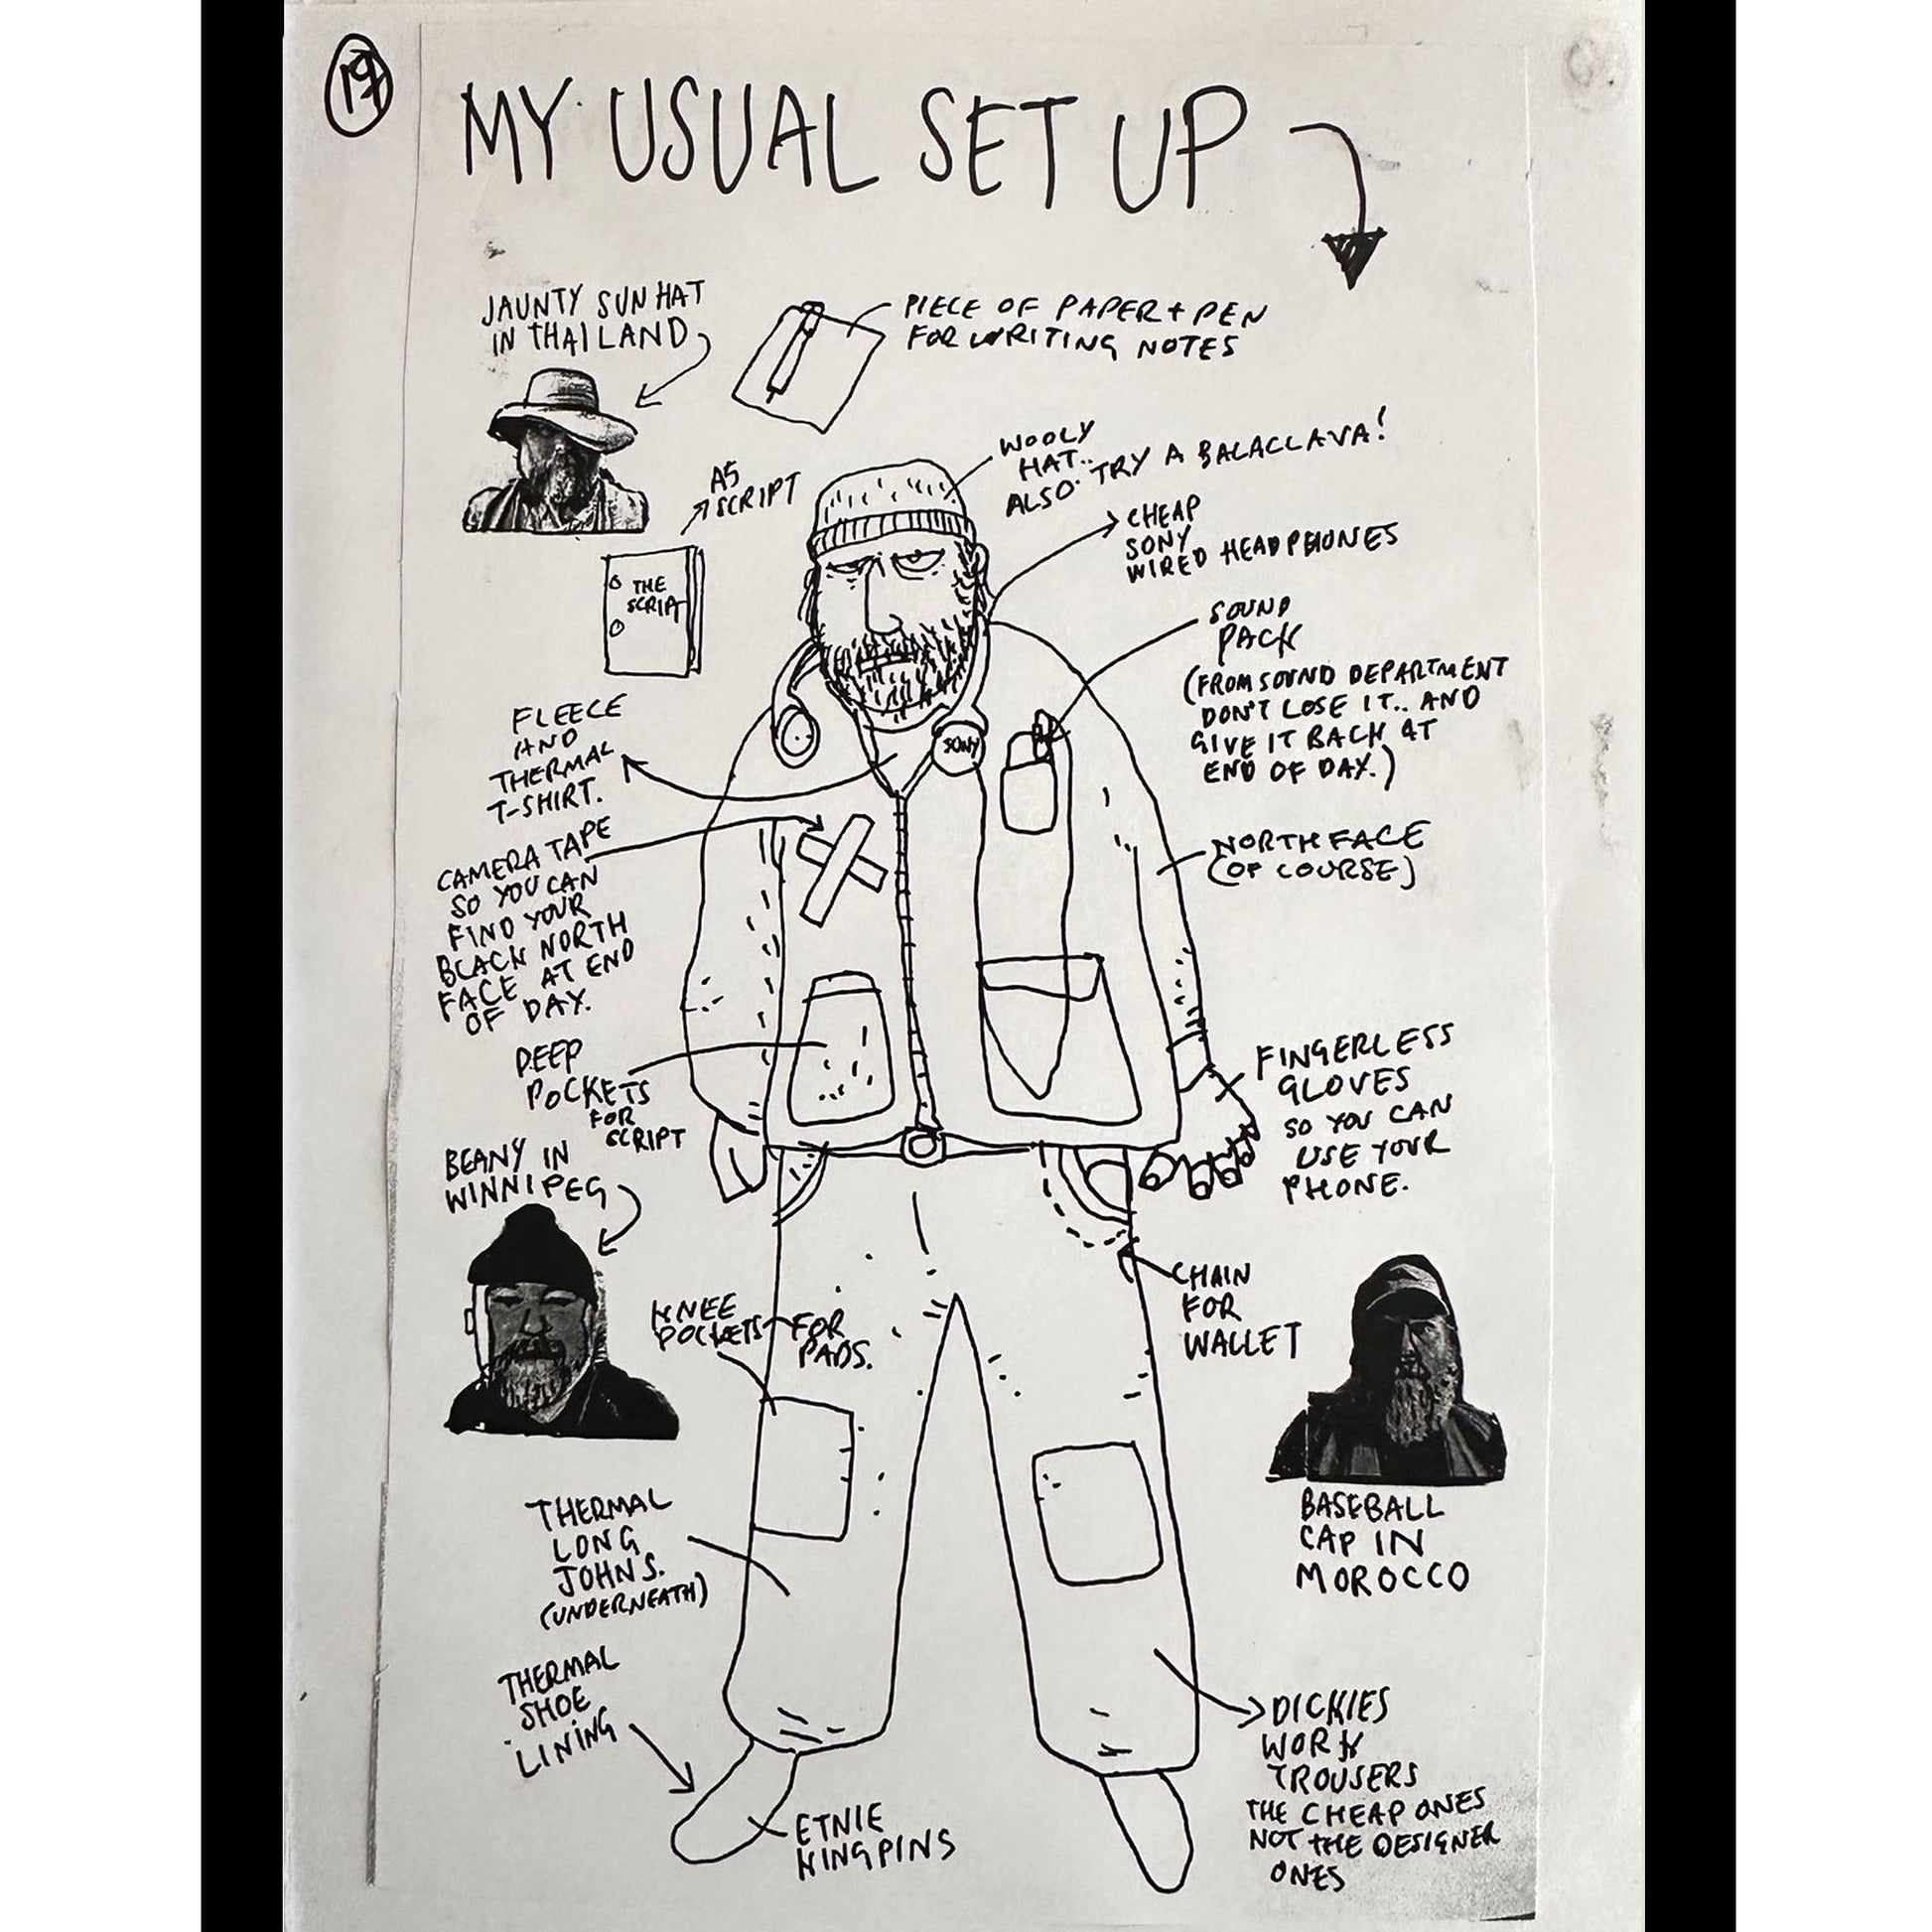 19
MY USUAL SET UP
JAUNTY SUN HAT
IN THAILAND
PIECE OF PAPER + PEN
FOR WRITING NOTES
WOOLY
HAT..
ALSO TRY A BALACLAVA!
A5
SCRIPT
THE
SCRIPT
CHEAP
SONY
WIRED HEADPHONES
SOUND
PACK
(FROM SOUND DEPARTMENT
DON'T LOSE IT.. AND
GIVE IT BACK AT
END OF DAY.)
SONY
FLEECE
AND
THERMAL
T-SHIRT.
CAMERA TAPE
SO YOU CAN
FIND YOUR
BLACK NORTH
FACE AT END
OF DAY.
NORTH FACE
(OF COURSE)
DEEP
POCKETS
FOR
SCRIPT
FINGERLESS
GLOVES
SO YOU CAN
USE YOUR
PHONE.
BEANY IN
WINNIPEG
CHAIN
FOR
WALLET
KNEE
POCKETS FOR
PADS.
BASEBALL
CAP IN
MOROCCO
THERMAL
LONG
JOHNS.
(UNDERNEATH)
THERMAL
SHOE
LINING
ETNIE
KINGPINS
DICKIES
WORK
TROUSERS
THE CHEAP ONES
NOT THE DESIGNER
ONES